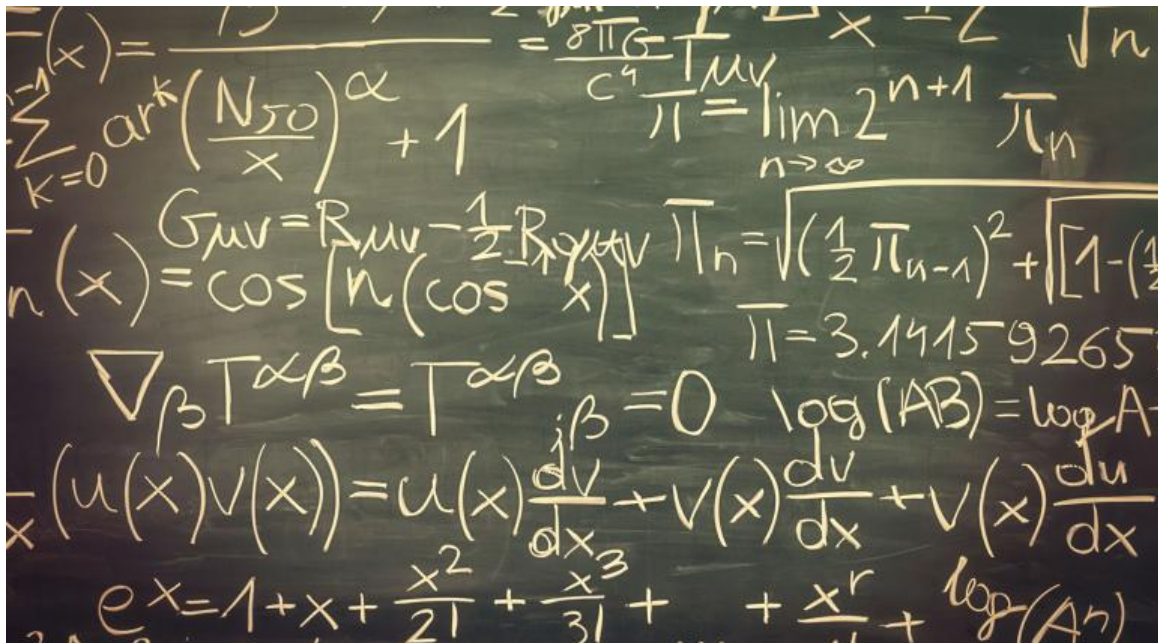 (x) = = 8πG/c⁴ Tμν x 2 √n
n-1 Σ k=0 ar^k (N50/x)^α + 1
π = lim n→∞ 2^(n+1) πn
Gμν = Rμν - 1/2 R gμν
πn = √((1/2 πn-1)² + √[1-(1/2
n(x) = cos[n(cos⁻¹ x)]
π = 3.1415 9265
∇β T^αβ = T^αβ ;β = 0
log(AB) = log A
x (u(x)v(x)) = u(x) dv/dx + v(x) dv/dx + v(x) du/dx
e^x = 1 + x + x²/2! + x³/3! + + x^r + log(An)